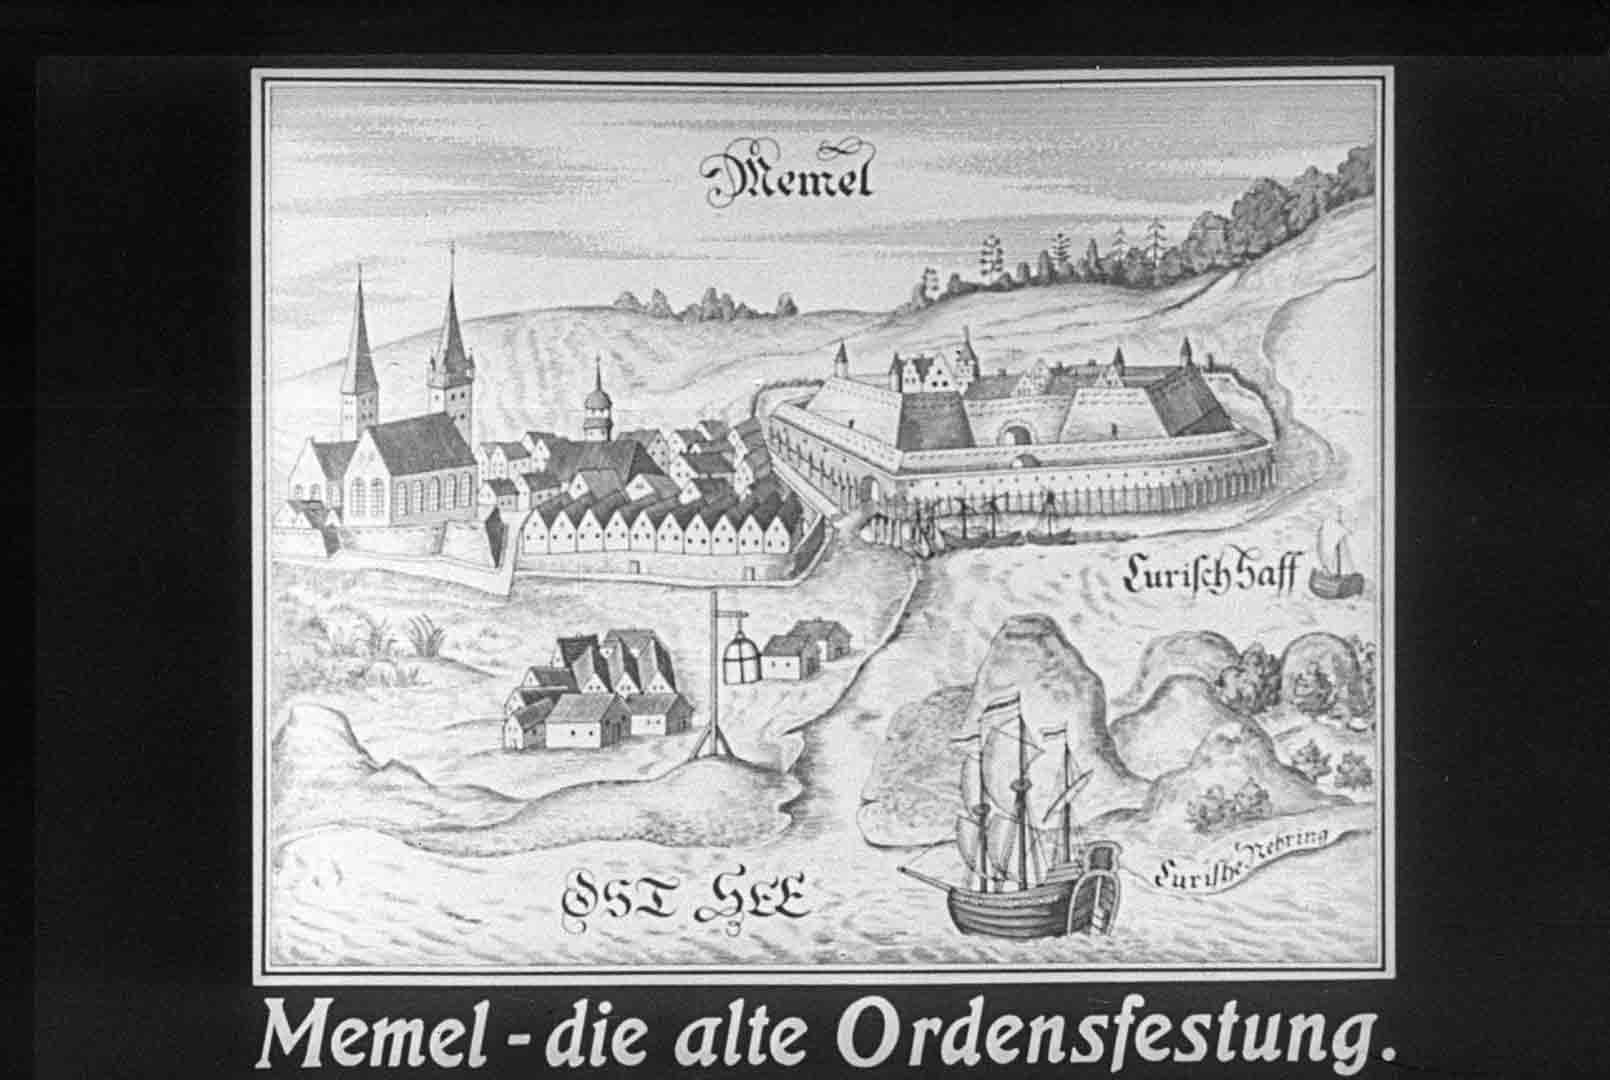 Memel
Curisch Haff
Curishe Nehring
OST SEE
Memel - die alte Ordensfestung.